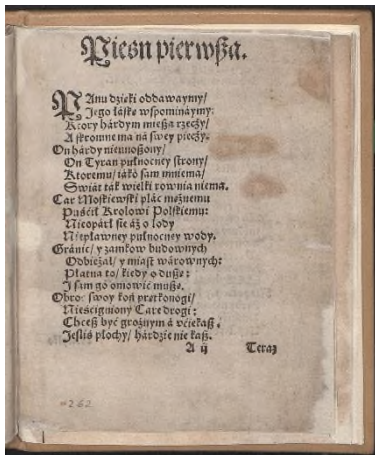 Pieśń pierwßa.
PAnu dzięki oddawaymy/
Jego łáskę wspomináymy:
Ktory hárdym mießa rzeczy/
A skromne ma ná swey pieczy.
On hárdy nieunoßony/
On Tyran pułnocney strony/
Ktoremu/ iáko sam mniema/
Swiát ták wielki rownia niema.
Car Moskiewski plác możnemu
Puśćił Krolowi Polskiemu:
Nieopárł sie áż o lody
Nieplawney pułnocney wody.
Gránic/ y zamkow budownych
Odbieżał/ y miast wárownych:
Płatna to/ kiedy o dußę:
I sam go omowić mußę.
Obroć swoy koń prętkonogi/
Niesćigniony Care drogi:
Chceß być groźnym á vćiekaß.
Jesliś płochy/ hárdzie nie każ.
A ij Teraz
#262